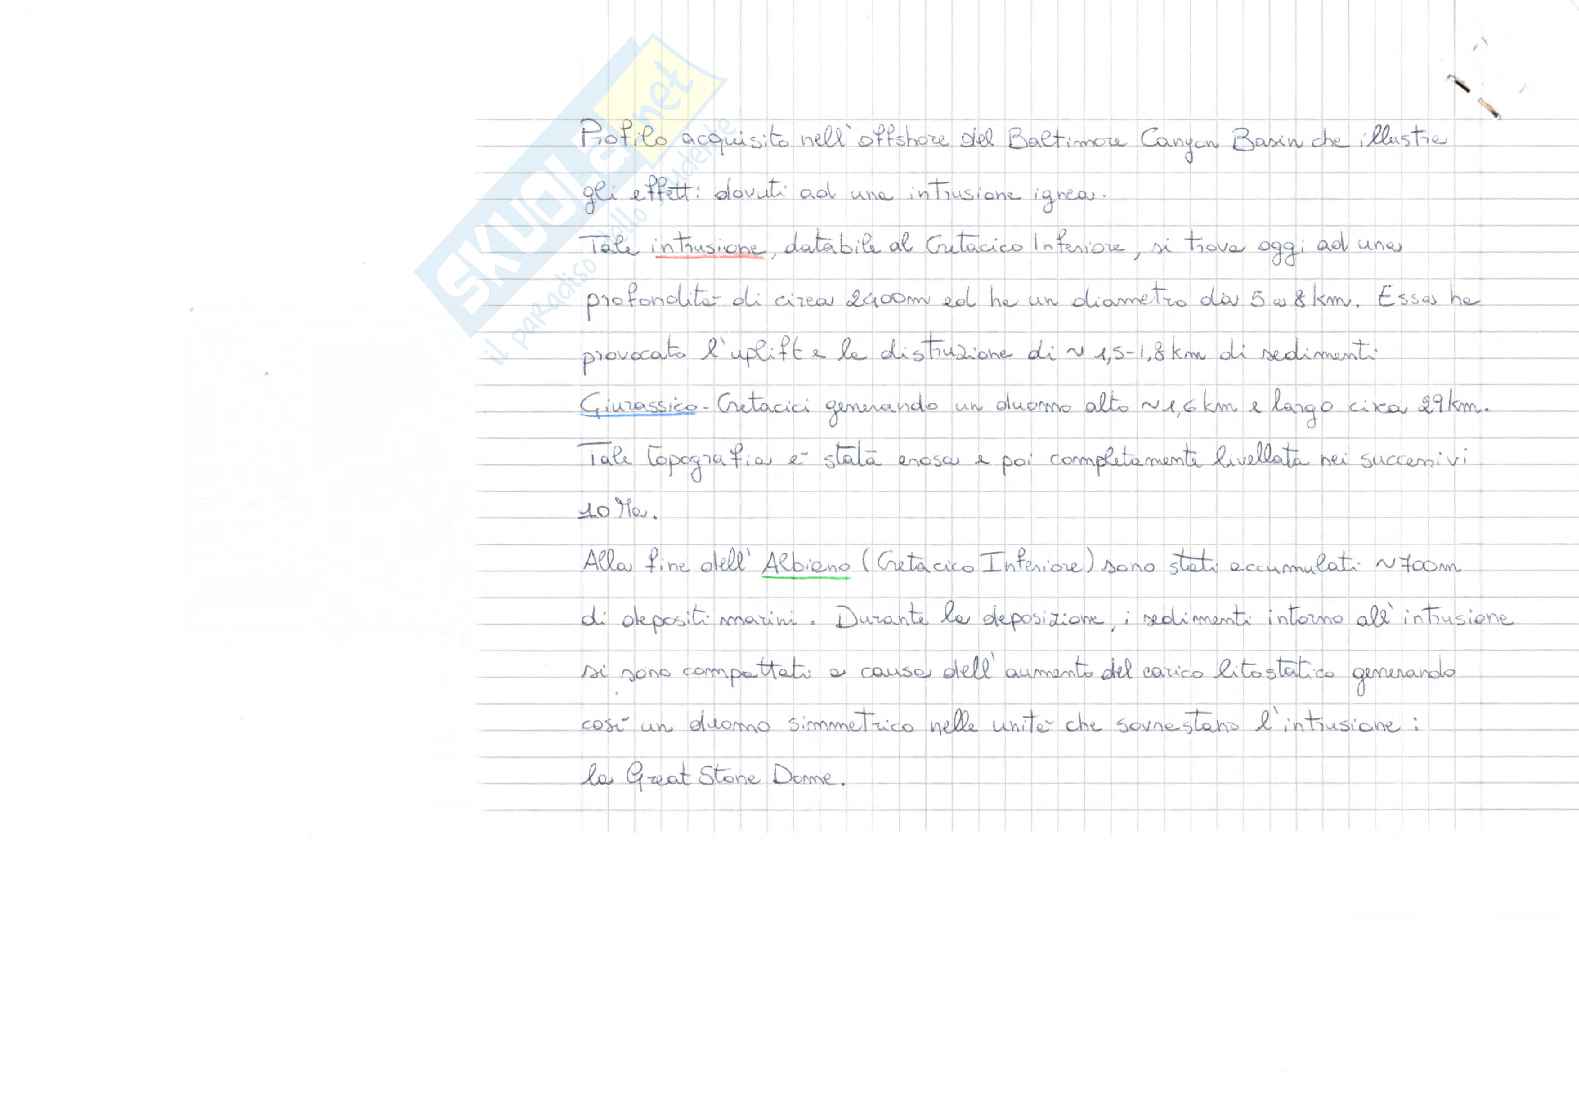 SKUOLA.net
il paradiso dello studente
Profilo acquisito nell'offshore del Baltimore Canyon Basin che illustra
gli effetti dovuti ad una intrusione ignea.
Tale intrusione, databile al Cretacico Inferiore, si trova oggi ad una
profondità di circa 2400m ed ha un diametro da 5 a 8 km. Essa ha
provocato l'uplift e la distruzione di ~ 1,5-1,8 km di sedimenti
Giurassico-Cretacici generando un duomo alto ~1,6 km e largo circa 29 km.
Tale topografia è stata erosa e poi completamente livellata nei successivi
10 Ma.
Alla fine dell'Albiano (Cretacico Inferiore) sono stati accumulati ~700m
di depositi marini. Durante la deposizione, i sedimenti intorno all'intrusione
si sono compattati a causa dell'aumento del carico litostatico generando
così un duomo simmetrico nelle unità che sovrastano l'intrusione:
la Great Stone Dome.